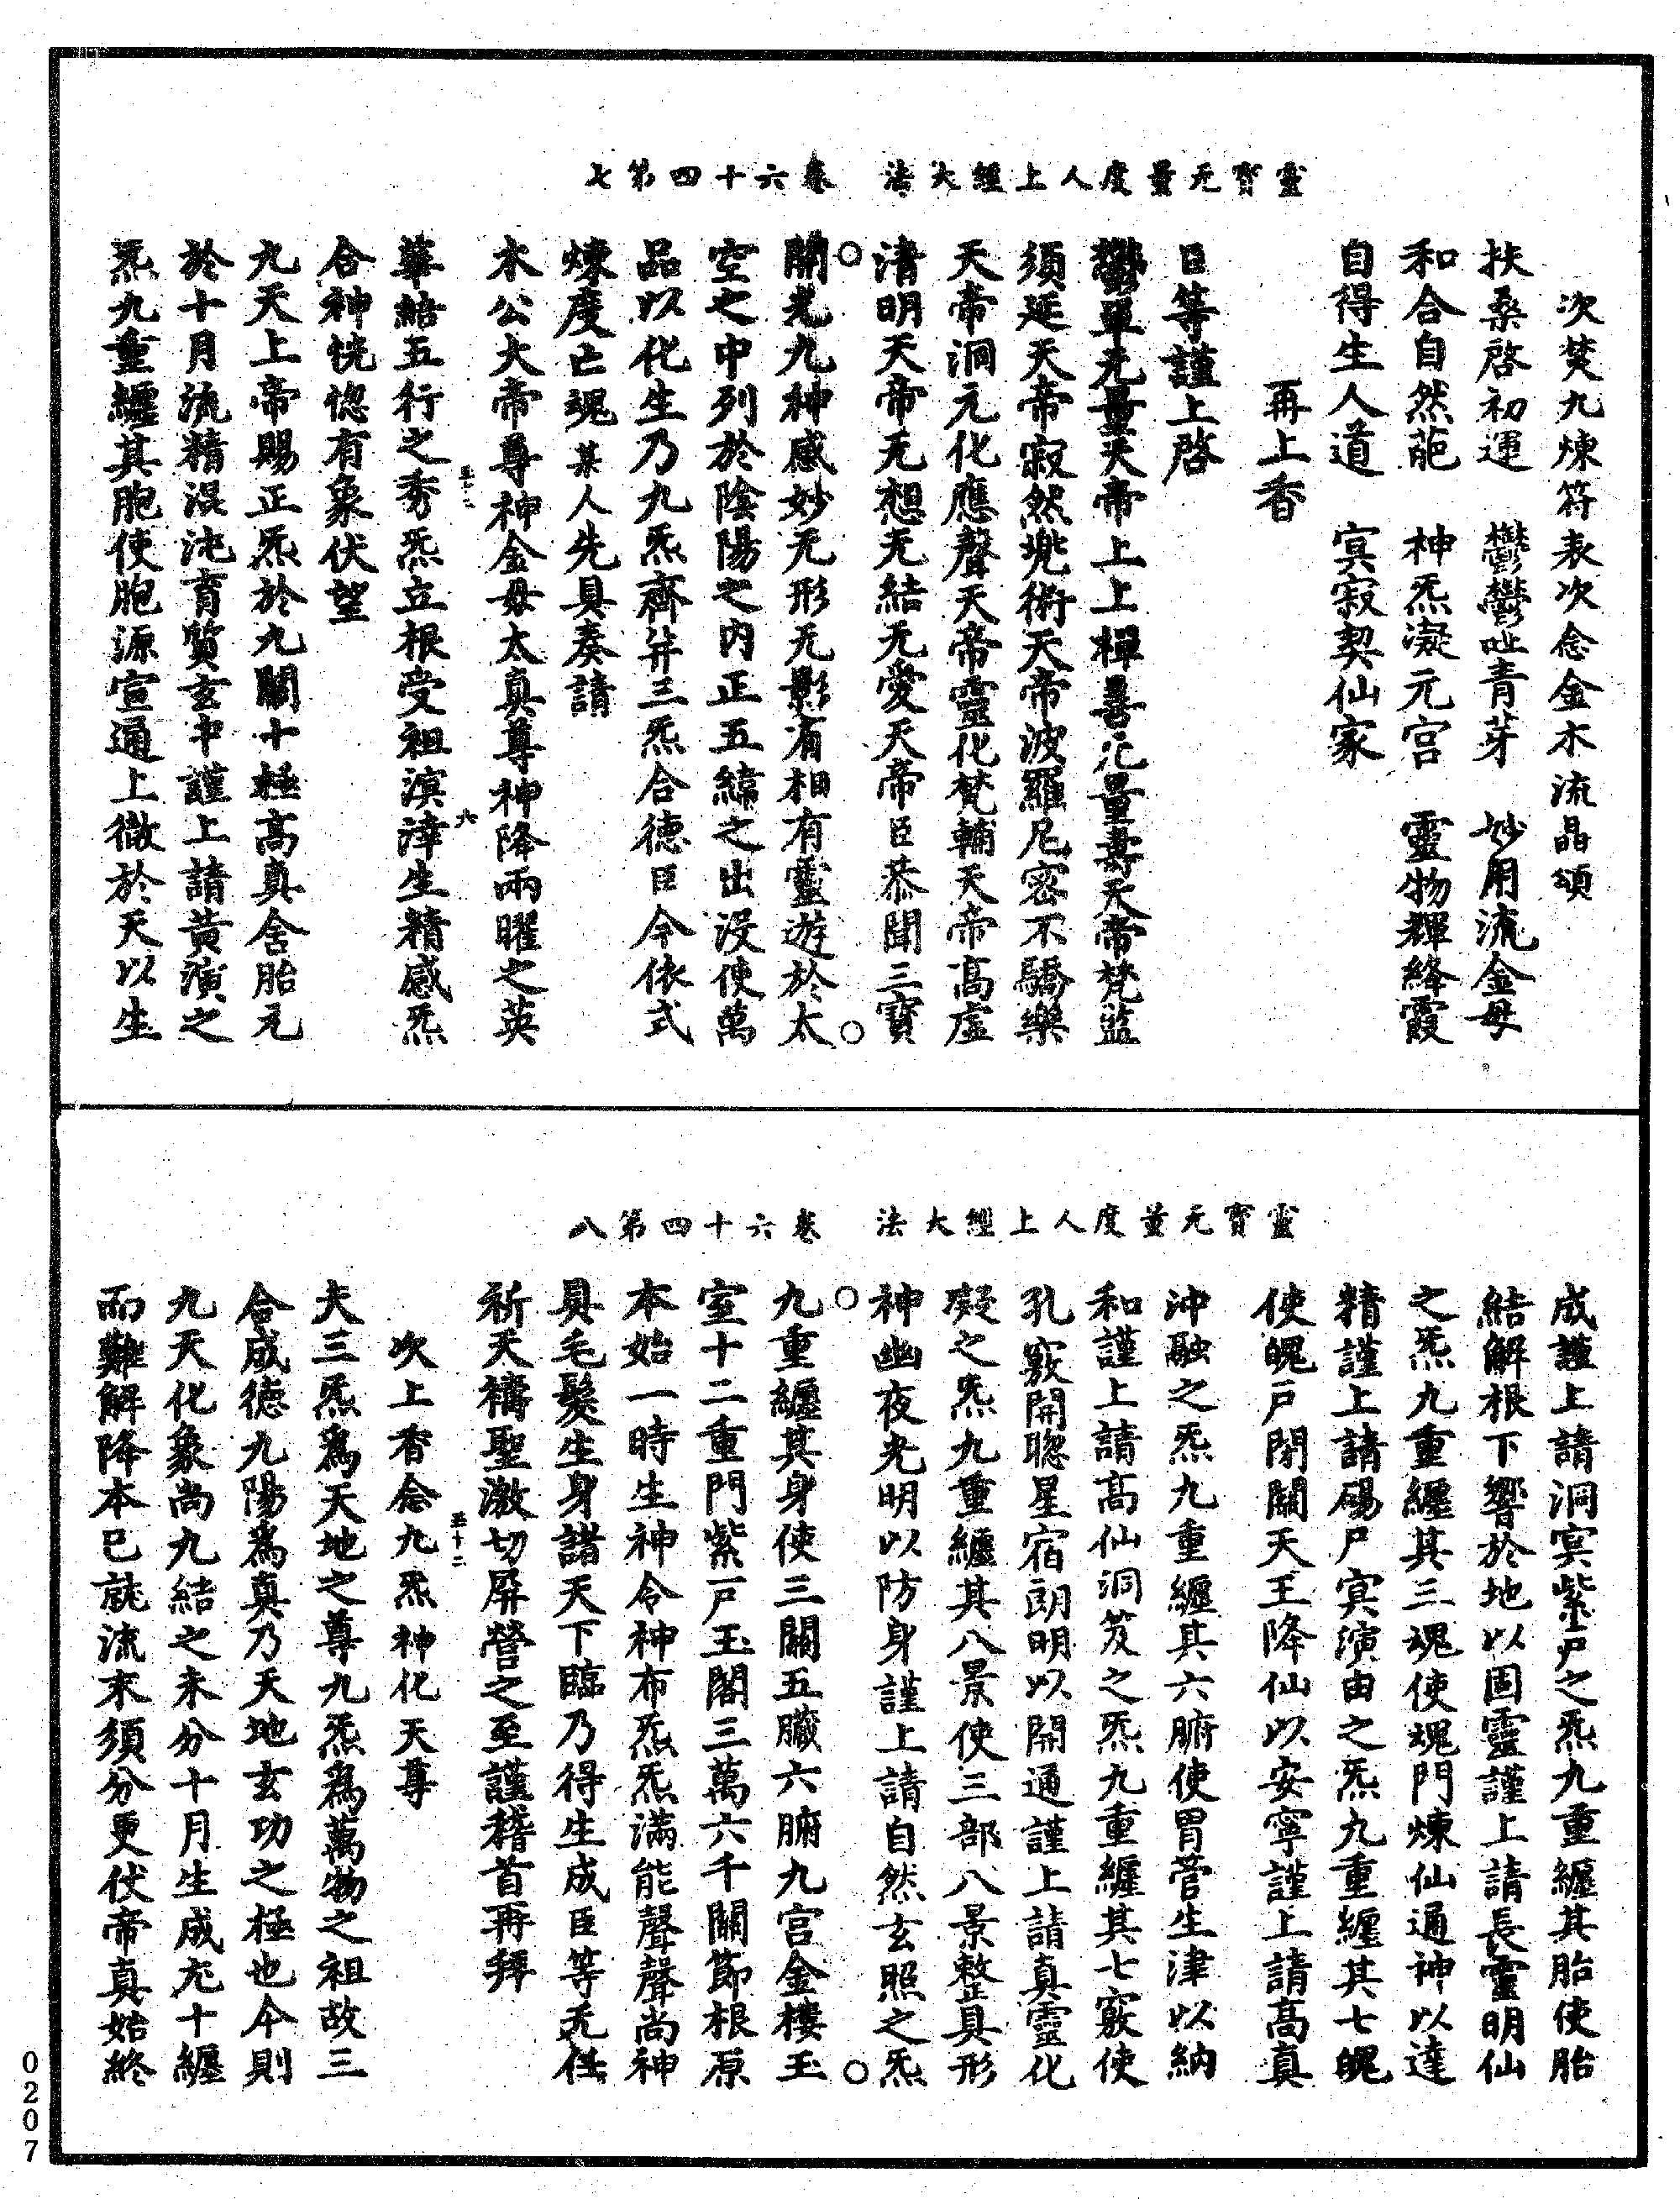 靈寶无量度人上經大法　卷六十四第七
次焚九煉符表次念金木流晶頌
扶桑啓初運　鬱鬱吐青芽　妙用流金母
和合自然葩　神炁凝元宫　靈物輝絳霞
自得生人道　冥寂契仙家
再上香
臣等謹上啓
鬱單无量天帝上上禪善无量壽天帝梵監
須延天帝寂然兠術天帝波羅尼密不驕樂
天帝洞元化應聲天帝靈化梵輔天帝高虚
清明天帝无想无結无愛天帝臣恭聞三寶
開光九神感妙无形无影有相有靈遊於太
空之中列於陰陽之内正五緯之出没使萬
品以化生乃九炁齊并三炁合德臣今依式
煉度亡魂某人先具奏請
木公大帝尊神金母太真尊神降兩曜之英
華結五行之秀炁立根受祖溟涬生精感炁
合神恍惚有象伏望
九天上帝賜正炁於九關十極高真舍胎元
於十月流精混沌育質玄中謹上請黄演之
炁九重纏其胞使胞源宣通上徹於天以生
靈寶无量度人上經大法　卷六十四第八
成謹上請洞冥紫戶之炁九重纏其胎使胎
結解根下響於地以固靈謹上請長靈明仙
之炁九重纏其三魂使魂門煉仙通神以達
精謹上請碭尸冥演由之炁九重纏其七魄
使魄戸閉關天王降仙以安寧謹上請高真
沖融之炁九重纏其六腑使胃管生津以納
和謹上請高仙洞笈之炁九重纏其七竅使
孔竅開聰星宿朗明以開通謹上請真靈化
凝之炁九重纏其八景使三部八景整具形
神幽夜光明以防身謹上請自然玄照之炁
九重纏其身使三關五臟六腑九宫金樓玉
室十二重門紫戸玉閣三萬六千關節根原
本始一時生神令神布炁炁滿能聲聲尚神
具毛髮生身諸天下臨乃得生成臣等无任
祈天禱聖激切屏營之至謹稽首再拜
次上香念九炁神化天尊
夫三炁爲天地之尊九炁爲萬物之祖故三
合成德九陽爲真乃天地玄功之極也今則
九天化象尚九結之未分十月生成尤十纏
而難解降本已就流末須分更伏帝真始終
0207